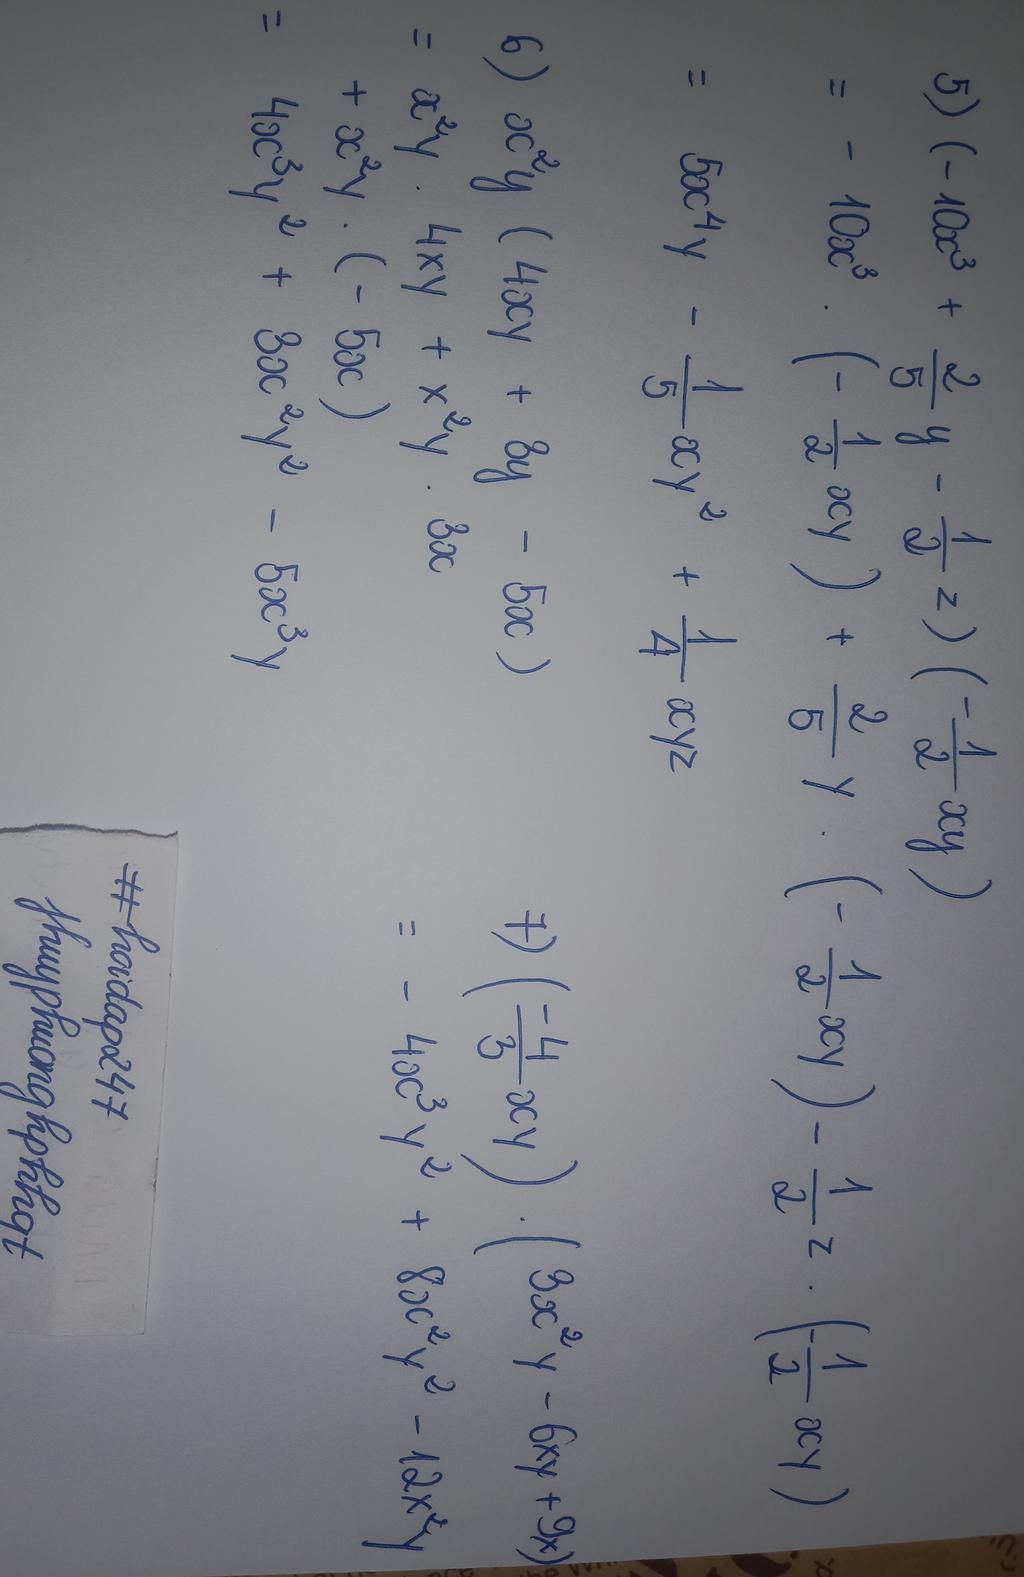 5) (-10x³ + 2/5 y - 1/2 z) (-1/2 xy)
= - 10x³ . (-1/2 xy) + 2/5 y . (-1/2 xy) - 1/2 z . (-1/2 xy)
= 5x⁴y - 1/5 xy² + 1/4 xyz
6) x²y (4xy + 3y - 5x)
= x²y . 4xy + x²y . 3x
+ x²y . (- 5x)
= 4x³y² + 3x²y² - 5x³y
7) (-4/3 xy) . (3x²y - 6xy + 9x)
= - 4x³y² + 8x²y² - 12x²y
#hoidap247